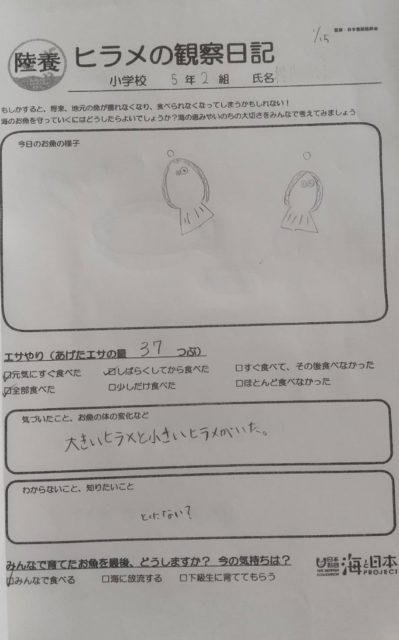 1/15
陸養
ヒラメの観察日記
小学校 5年 2組 氏名
もしかすると、将来、地元の魚が獲れなくなり、食べられなくなってしまうかもしれない！
海のお魚を守っていくにはどうしたらよいでしょうか？海の恵みやいのちの大切さをみんなで考えてみましょう
今日のお魚の様子
エサやり（あげたエサの量 37 つぶ）
☑元気にすぐ食べた ☑しばらくしてから食べた □すぐ食べて、その後食べなかった
☑全部食べた □少しだけ食べた □ほとんど食べなかった
気づいたこと、お魚の体の変化など
大きいヒラメと小さいヒラメがいた。
わからないこと、知りたいこと
みんなで育てたお魚を最後、どうしますか？ 今の気持ちは？
☑みんなで食べる □海に放流する □下級生に育ててもらう
日本財団 THE NIPPON FOUNDATION 海と日本 PROJECT